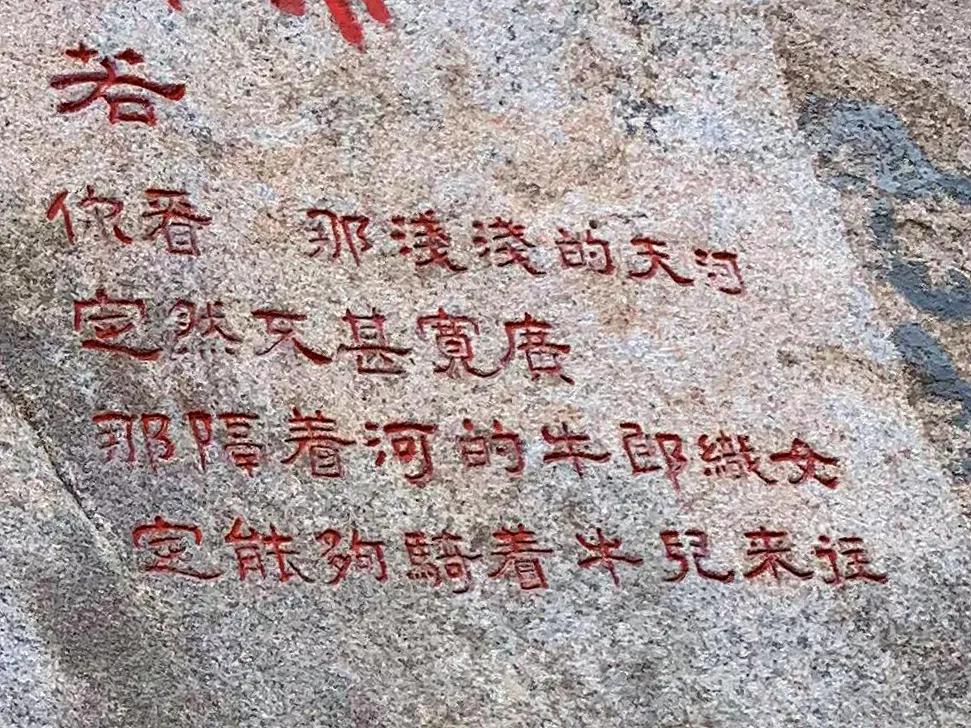 若
你看 那淺淺的天河
定然不甚寬廣
那隔着河的牛郎織女
定能夠騎着牛兒來往